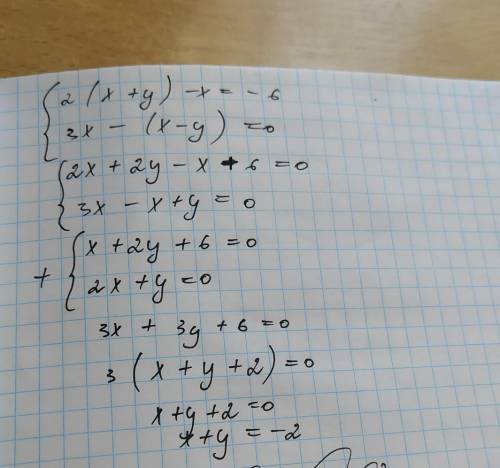 2(x+y)-x=-6
3x-(x-y)=0
2x+2y-x+6=0
3x-x+y=0
+ x+2y+6=0
2x+y=0
3x+3y+6=0
3(x+y+2)=0
x+y+2=0
x+y=-2